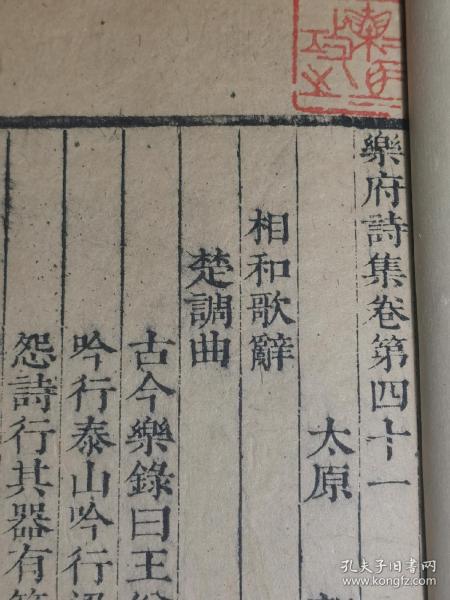 樂府詩集卷第四十一
太原
相和歌辭
楚調曲
古今樂錄曰王
吟行泰山吟行
怨詩行其器有
孔夫子旧书网
www.kongfz.com